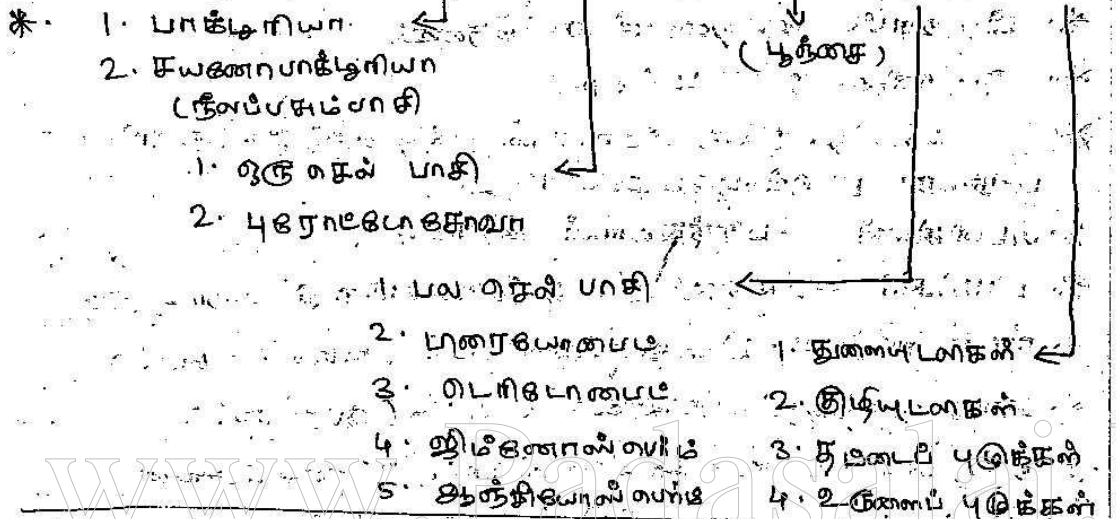 *. 1. பாக்டீரியா
2. சயனோபாக்டீரியா
(நீலப்பசும்பாசி)
(பூஞ்சை)
1. ஒரு செல் பாசி
2. புரோட்டோசோவா
1. பல செல் பாசி
2. பிரையோபைட்
3. டெரிடோபைட்
4. ஜிம்னோஸ்பெர்ம்
5. ஆஞ்சியோஸ்பெர்ம்
1. துளையுடலிகள்
2. குழியுடலிகள்
3. தட்டைப் புழுக்கள்
4. உருளைப் புழுக்கள்
www.Padasalai